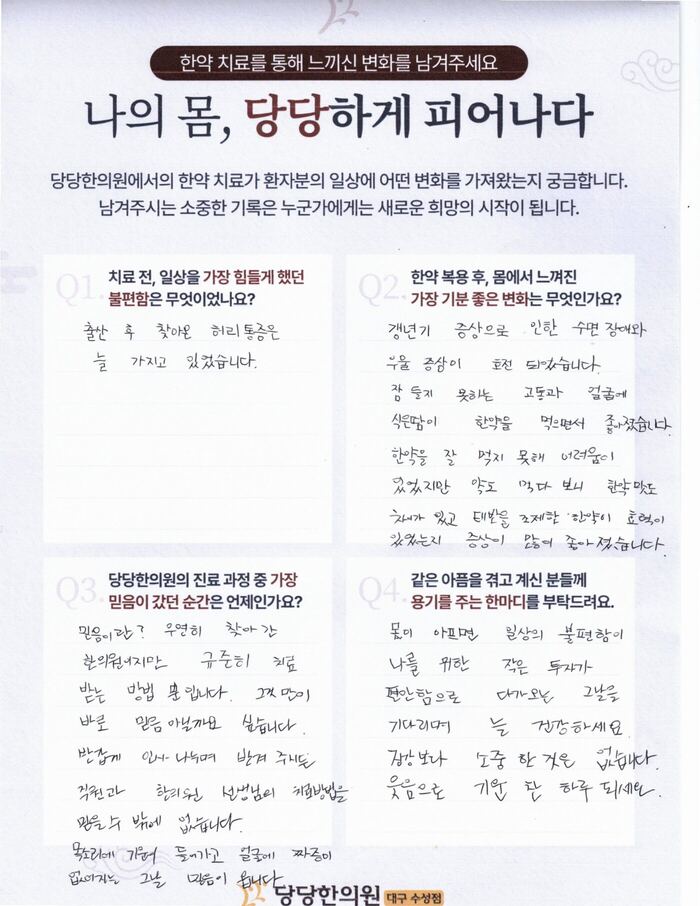 한약 치료를 통해 느끼신 변화를 남겨주세요
나의 몸, 당당하게 피어나다
당당한의원에서의 한약 치료가 환자분의 일상에 어떤 변화를 가져왔는지 궁금합니다.
남겨주시는 소중한 기록은 누군가에게는 새로운 희망의 시작이 됩니다.
Q1. 치료 전, 일상을 가장 힘들게 했던
불편함은 무엇이었나요?
출산 후 찾아온 허리통증은
늘 가지고 있었습니다.
Q2. 한약 복용 후, 몸에서 느껴진
가장 기분 좋은 변화는 무엇인가요?
갱년기 증상으로 인한 수면 장애와
우울 증상이 호전 되었습니다.
잠 들지 못하는 고통과 얼굴에
식은땀이 한약을 먹으면서 좋아졌습니다.
한약을 잘 먹지 못해 어려움이
있었지만 약도 먹다 보니 한약 맛도
차이가 있고 대반을 조제한 한약이 효력이
있었는지 증상이 많이 좋아졌습니다.
Q3. 당당한의원의 진료 과정 중 가장
믿음이 갔던 순간은 언제인가요?
믿음이란? 우연히 찾아간
한의원이지만 규준히 치료
받는 방법 뿐입니다. 그것만이
바로 믿음 아닐까요 싶습니다.
반갑게 인사 나누며 반겨 주시는
직원과 한의원 선생님의 치료방법을
믿을 수 밖에 없습니다.
목소리에 기운이 들어가고 얼굴에 짜증이
없어지는 그날 믿음이 옵니다.
Q4. 같은 아픔을 겪고 계신 분들께
용기를 주는 한마디를 부탁드려요.
몸이 아프면 일상의 불편함이
나를 위한 작은 투자가
편안함으로 다가오는 그날을
기다리며 늘 건강하세요.
건강보다 소중 한 것은 없습니다.
웃음으로 기운 찬 하루 되세요.
당당한의원 대구 수성점